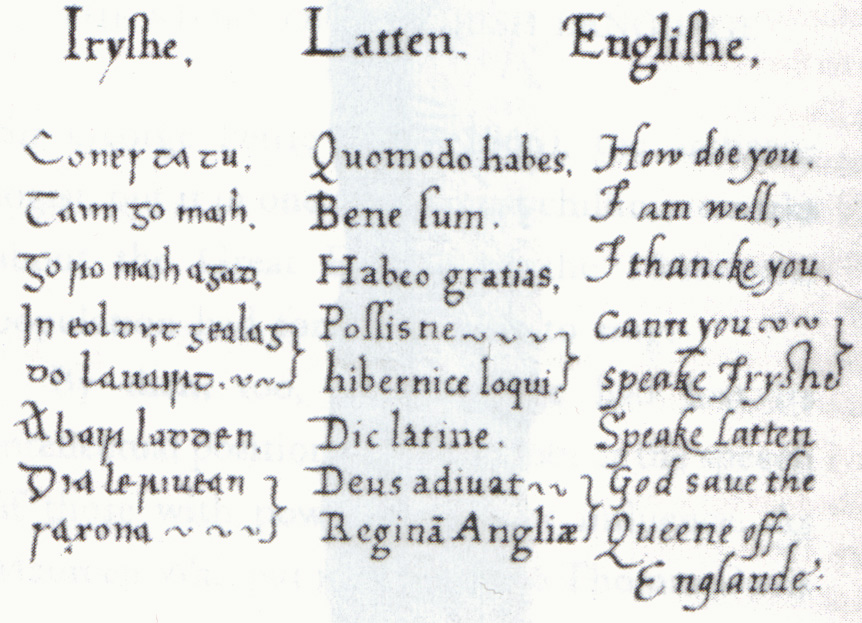 Iryshe, Latten, Englishe,
Coner ta tu, Quomodo habes, How doe you,
Taim go maih, Bene sum. I am well,
Go ro maih agad, Habeo gratias, I thancke you,
In eolder gealag Possis ne Cann you
do lauairt, hibernice loqui, speake Iryshe
Abair ladden, Dic latine. Speake Latten
Dia le riuean Deus adiuat God saue the
saxona Reginā Angliæ Queene off
Englande: